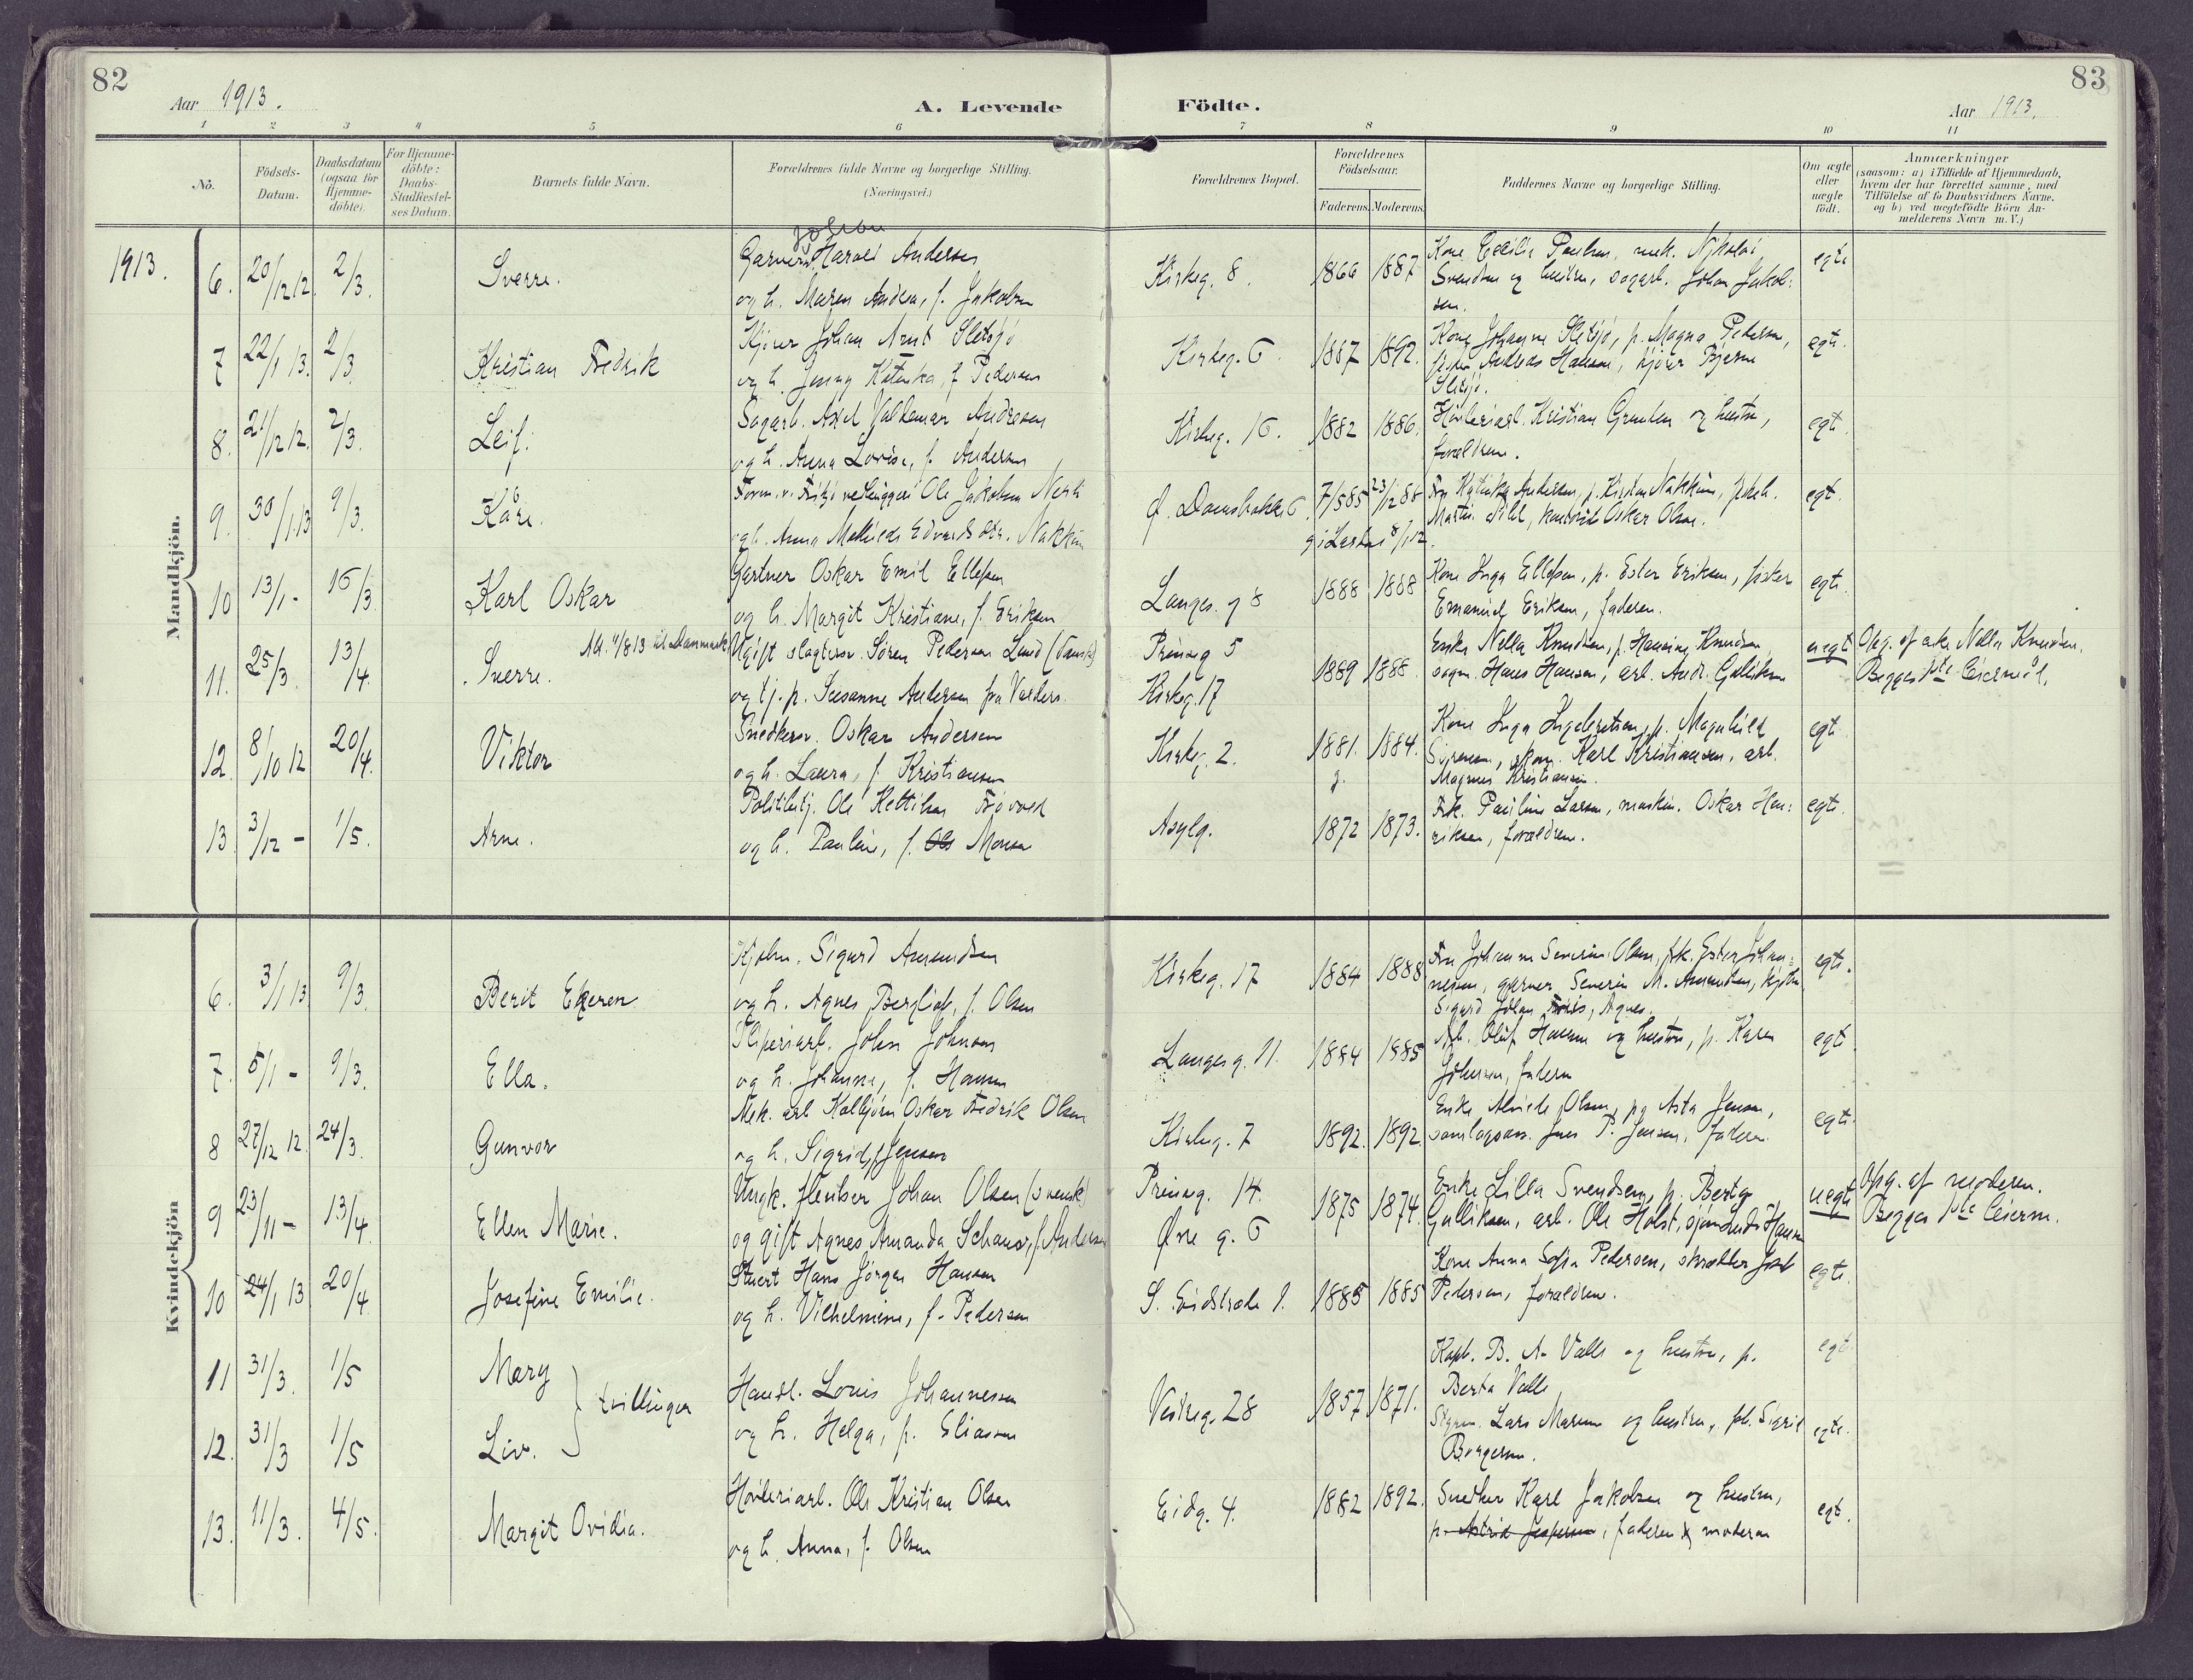 82
Aar 1913.
A. Levende
Födte.
Aar 1913.
83
1 2 3 4 5 6 7 8 9 10 11
No.
Födsels-Datum.
Daabsdatum (ogsaa for Hjemme-döbte).
For Hjemme-döbte: Daabs-Stadfæstel-ses Datum.
Barnets fulde Navn.
Forældrenes fulde Navne og borgerlige Stilling.
(Næringsvei.)
Forældrenes Bopæl.
Forældrenes Födselsaar.
Faderens. Moderens.
Faddernes Navne og borgerlige Stilling.
Om ægte eller uægte født.
Anmærkninger
(saasom: a) i Tilfælde af Hjemmedaab,
hvem der har forrettet samme, med
Tilföielse af to Daabsvidners Navne,
og b) ved uægtefödte Börn An-
melderens Navn m. V.)
Mandkjön.
1913.
6. 20/12 12. 2/3. Sverre. Johan
Garver Harald Andersen
og h. Maren Andrea, f. Jakobsen
Kirkeg. 8. 1866 1887
Svendsen og hustru, sagarb. Johan Jakob-
sen.
egte
7 22/1 13. 2/3. Kristian Fredrik
Kjører Johan Arnt Sletsjø
og h. Jenny Katinka, f. Pedersen
Kirkeg. 6. 1887 1892.
Kone Johanne Sletsjø, p. Magna Pedersen,
Andreas Hansen, kjører Bjarne
Sletsjø.
egte.
8. 21/12 12. 2/3. Leif.
Sagarb. Axel Valdemar Andresen
og h. Anna Lovise, f. Andersen
Kirkeg. 16. 1882 1886.
Høvleriarb. Kristian og hustru,
forældrene.
egte.
9. 30/1 13 9/3. Kåre.
Ole Jakobsen
og h. Anna Mathilde Edvardsdtr. Nakkim
7/5 85 23/12 88
Fru Katinka Andersen, p. Kirsten Nakkim,
Oskar Olsen.
egte.
10 13/1 - 16/3 Karl Oskar
Gartner Oskar Emil Ellefsen
og h. Margit Kristiane, f. Eriksen
Langes. g 8 1888 1888
Kone Inga Ellefsen, p. Ester Eriksen,
Emanuel Eriksen, faderen.
egte.
11. 25/3. 13/4 Sverre. Att. 11/8 13 til Danmark
Ugift slagtersv. Sören Pedersen Lund (dansk)
og tj. p. Susanne Andersen fra
Prinsg 5
Kirkeg. 17
1889 1888.
Enke Nella Knudsen, p. Hansine Knudsen,
Hans Hansen, arb. Andr. Gulliksen
uegte
Opg. af enke Nella Knudsen.
Begges 1ste leiermål.
12. 8/10 12 20/4. Viktor
Snedkersv. Oskar Andersen
og h. Laura, f. Kristiansen
Kirkeg. 2. 1881. 1884.
Kone Inga Ingebretsen, p. Magnhild
Karl Kristiansen, arb.
Magnus Kristiansen.
egte
13. 3/12 - 1/5. Arne.
Politibetj. Ole Kettilsen
og h. Pauline, f. Monsen
Asylg. 1872 1873.
Frk. Pauline Larsen, maskin. Oskar Hen-
riksen, forældrene.
egte.
Kvindekjön
6. 3/1 13 9/3. Berit Ekeren
Kjøbm. Sigurd Amundsen
og h. Agnes Bergliot, f. Olsen
Kirkeg. 17 1884 1888
Fru Johanne Severine Olsen, frk. Ester Johan-
nesen, garver Severin M. Amundsen, kjøbm.
egte.
7. 5/1 - 9/3. Ella.
Sliperiarb. John Johnsen
og h. Johanne, f. Hansen
Langes g. 11. 1884 1885
Arb. Oluf Hansen og hustru, p. Karen
Johnsen, faderen
egte.
8 27/12 12. 24/3. Gunvor
Mek. arb Kolbjörn Oskar Fredrik Olsen
og h. Sigrid, f. Jensen
Kirkeg. 7 1892. 1892
Enke Olsen, pg Asta Jensen,
Jens P. Jensen, faderen
egte.
9 23/11 - 13/4. Ellen Marie.
Ungk. Johan Olsen (svensk)
og gift Agnes Amanda Schau, f. Andersen
Prinsg. 14.
Øvre g. 6
1875 1874.
Enke Lilla Svendsen, p. Berta
Gulliksen, arb. Ole Holst, Hansen
uegte
Opg. af moderen.
Begges 1ste leierm.
10 24/1 13 20/4. Josefine Emilie.
Stuert Hans Jörgen Hansen
og h. Vilhelmine, f. Pedersen
S. Eidstræde 1. 1885 1885
Kone Anna Sofia Pedersen, skrædder
Pedersen, forældrene.
egte.
11 31/3. 1/5 Mary
12. 31/3 1/5 Liv.
tvillinger
Handl. Louis Johannessen
og h. Helga, f. Eliassen
Vestreg. 28 1857 1871.
Kapt. B. A. Valle og hustru, p.
Berta Valle
egte.
Lars Marum og hustru, Sigrid
Borgersen.
egte.
13. 11/3. 4/5. Margit Ovidia.
Høvleriarb. Ole Kristian Olsen
og h. Anna, f. Olsen
Eidg. 4. 1882 1892.
Snedker Karl Jakobsen og hustru,
p. Astrid Jespersen, faderen moderen
egte.